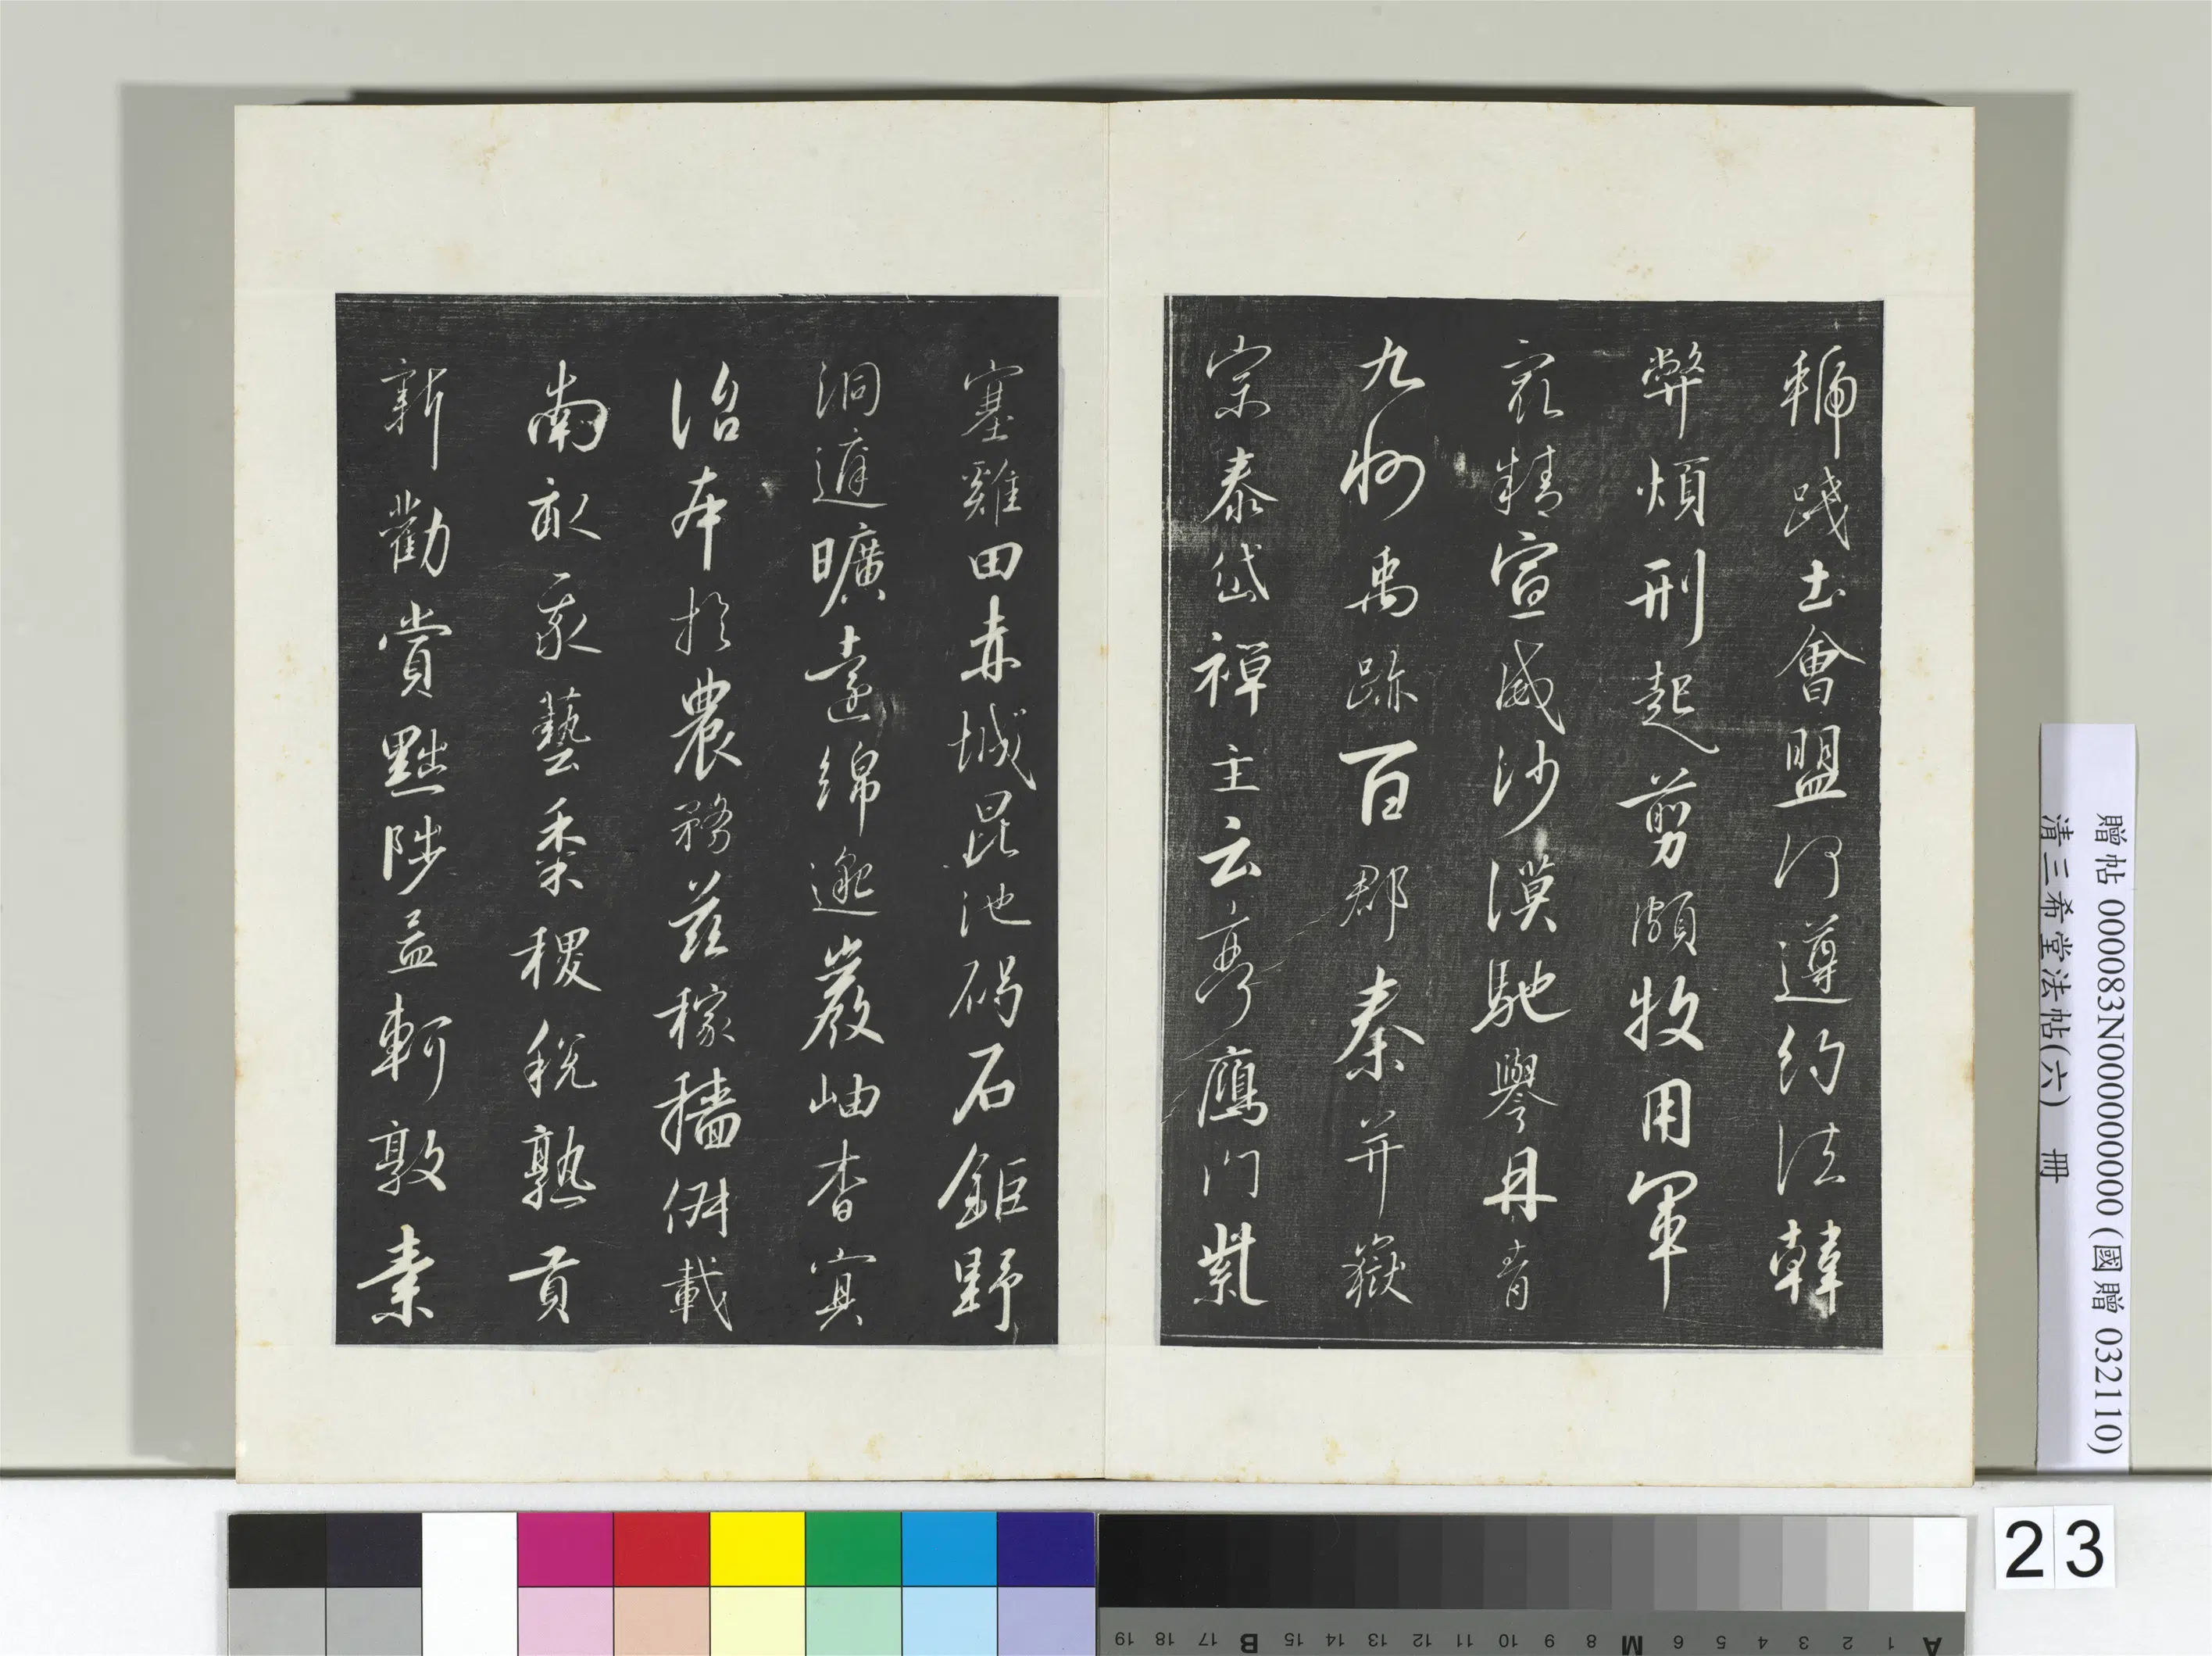 虢踐土會盟何遵約法韓
弊煩刑起剪頗牧用軍
最精宣威沙漠馳譽丹青
九州禹跡百郡秦并嶽
宗泰岱禪主云亭鴈門紫
塞雞田赤城昆池碣石鉅野
洞遐曠遠綿邈巖岫杳冥
治本於農務茲稼穡俶載
南畝我藝黍稷稅熟貢
新勸賞黜陟孟軻敦素
贈帖 000083N000000000 (國贈 032110)
清三希堂法帖(六) 冊
23
A 1 2 3 4 5 6 M 8 9 10 11 12 13 14 15 B 17 18 19